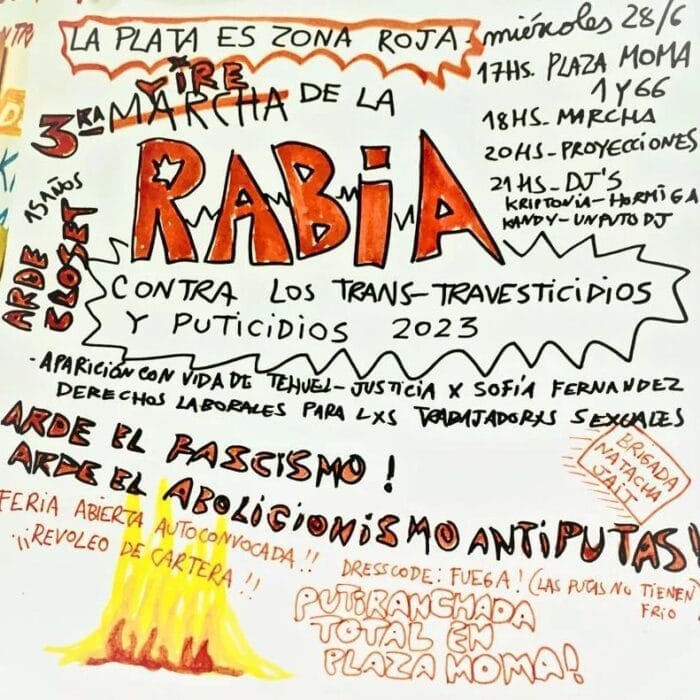 LA PLATA ES ZONA ROJA.
miércoles 28/6
17HS. PLAZA MOMA
1 Y 66
18HS- MARCHA
20HS- PROYECCIONES
21HS- DJ'S
KRIPTONIA- HORMIGA
KANDY- UNPUTO DJ
YIRE
3RA MARCHA DE LA
RABiA
ARDE CLOSET
15 AÑOS
CONTRA LOS TRANS-TRAVESTICIDIOS
Y PUTICIDIOS 2023
- APARICIÓN CON VIDA DE TEHUEL- JUSTICIA X SOFÍA FERNANDEZ
DERECHOS LABORALES PARA LXS TRABAJADORXS SEXUALES
ARDE EL FASCISMO!
ARDE EL ABOLICIONISMO ANTIPUTAS!
BRIGADA
NATACHA
JAIT
FERIA ABIERTA AUTOCONVOCADA!!
¡¡REVOLEO DE CARTERA!!
DRESSCODE: FUEGA! (LAS PUTAS NO TIENEN
FRIO
PUTIRANCHADA
TOTAL EN
PLAZA MOMA!